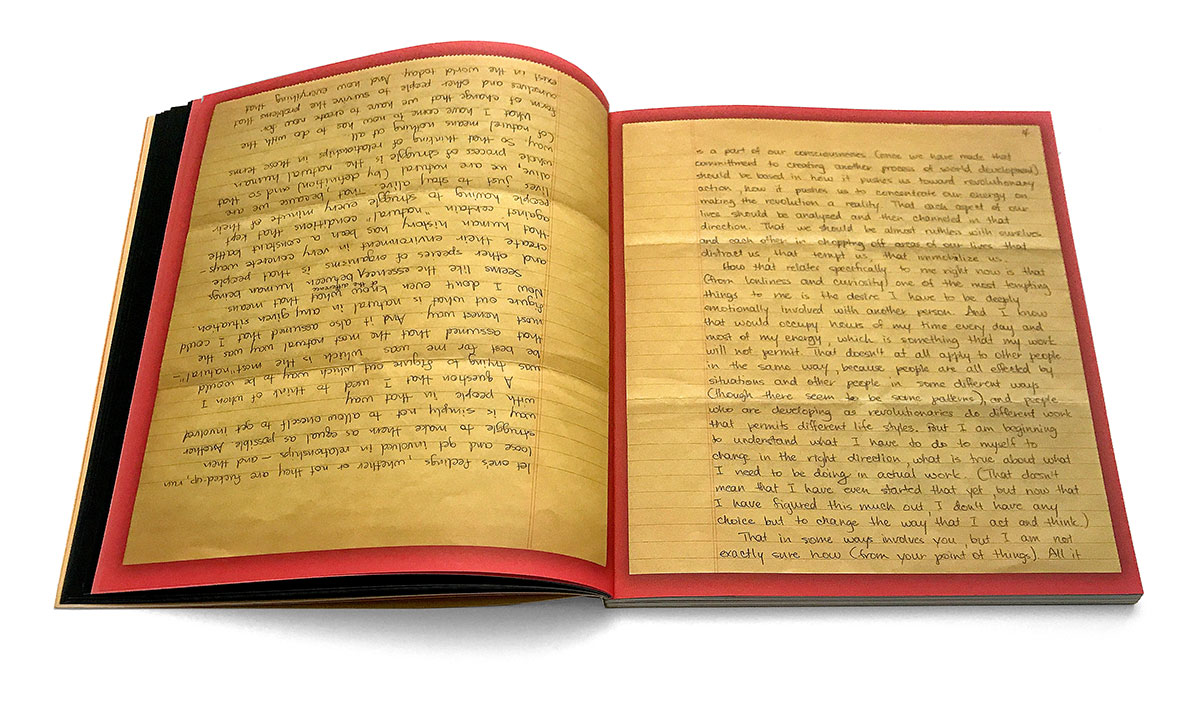 let one's feelings, whether or not they are fucked-up, run
loose and get involved in relationships – and then
struggle to make them as equal as possible. Another
way is simply not to allow oneself to get involved
with people in that way.
A question that I used to think of when I
was trying to figure out which way to be would
be best for me was which is the most "natural" –
that assumed that the most natural way was the
most honest way. And it also assumed that I could
figure out what is natural in any given situation.
Now I don't even know what that means
seems like the essence, of the difference between human beings
and other species of organisms is that people
create their environment in very concrete ways –
that human history has been a constant battle
against certain "natural" conditions that kept
people having to struggle every minute of their
lives just to stay alive. That, because we are
alive, we are natural (by definition) and so that
whole process of struggle is the natural human
way. So that thinking of relationships in those terms
(of natural) means nothing at all.
What I have come to now has to do with the
form of change that we have to create now for
ourselves and other people to survive the problems that
exist in the world today. And how everything that
4
is a part of our consciousness (once we have made that
committment to creating another process of world development)
should be based in how it pushes us toward revolutionary
action, how it pushes us to concentrate our energy on
making the revolution a reality. That each aspect of our
lives should be analyzed and then channeled in that
direction. That we should be almost ruthless with ourselves
and each other in chopping off areas of our lives that
distract us, that tempt us, that immobilize us.
How that relates specifically to me right now is that
(from lonliness and curiosity) one of the most tempting
things to me is the desire I have to be deeply
emotionally involved with another person. And I know
that would occupy hours of my time every day and
most of my energy, which is something that my work
will not permit. That doesn't at all apply to other people
in the same way, because people are all effected by
situations and other people in some different ways
(though there seem to be some patterns), and people
who are developing as revolutionaries do different work
that permits different life styles. But I am beginning
to understand what I have to do to myself to
change in the right direction, what is true about what
I need to be doing in actual work. (That doesn't
mean that I have even started that yet, but now that
I have figured this much out, I don't have any
choice but to change the way that I act and think.)
That in some ways involves you but I am not
exactly sure how (from your point of things). All it